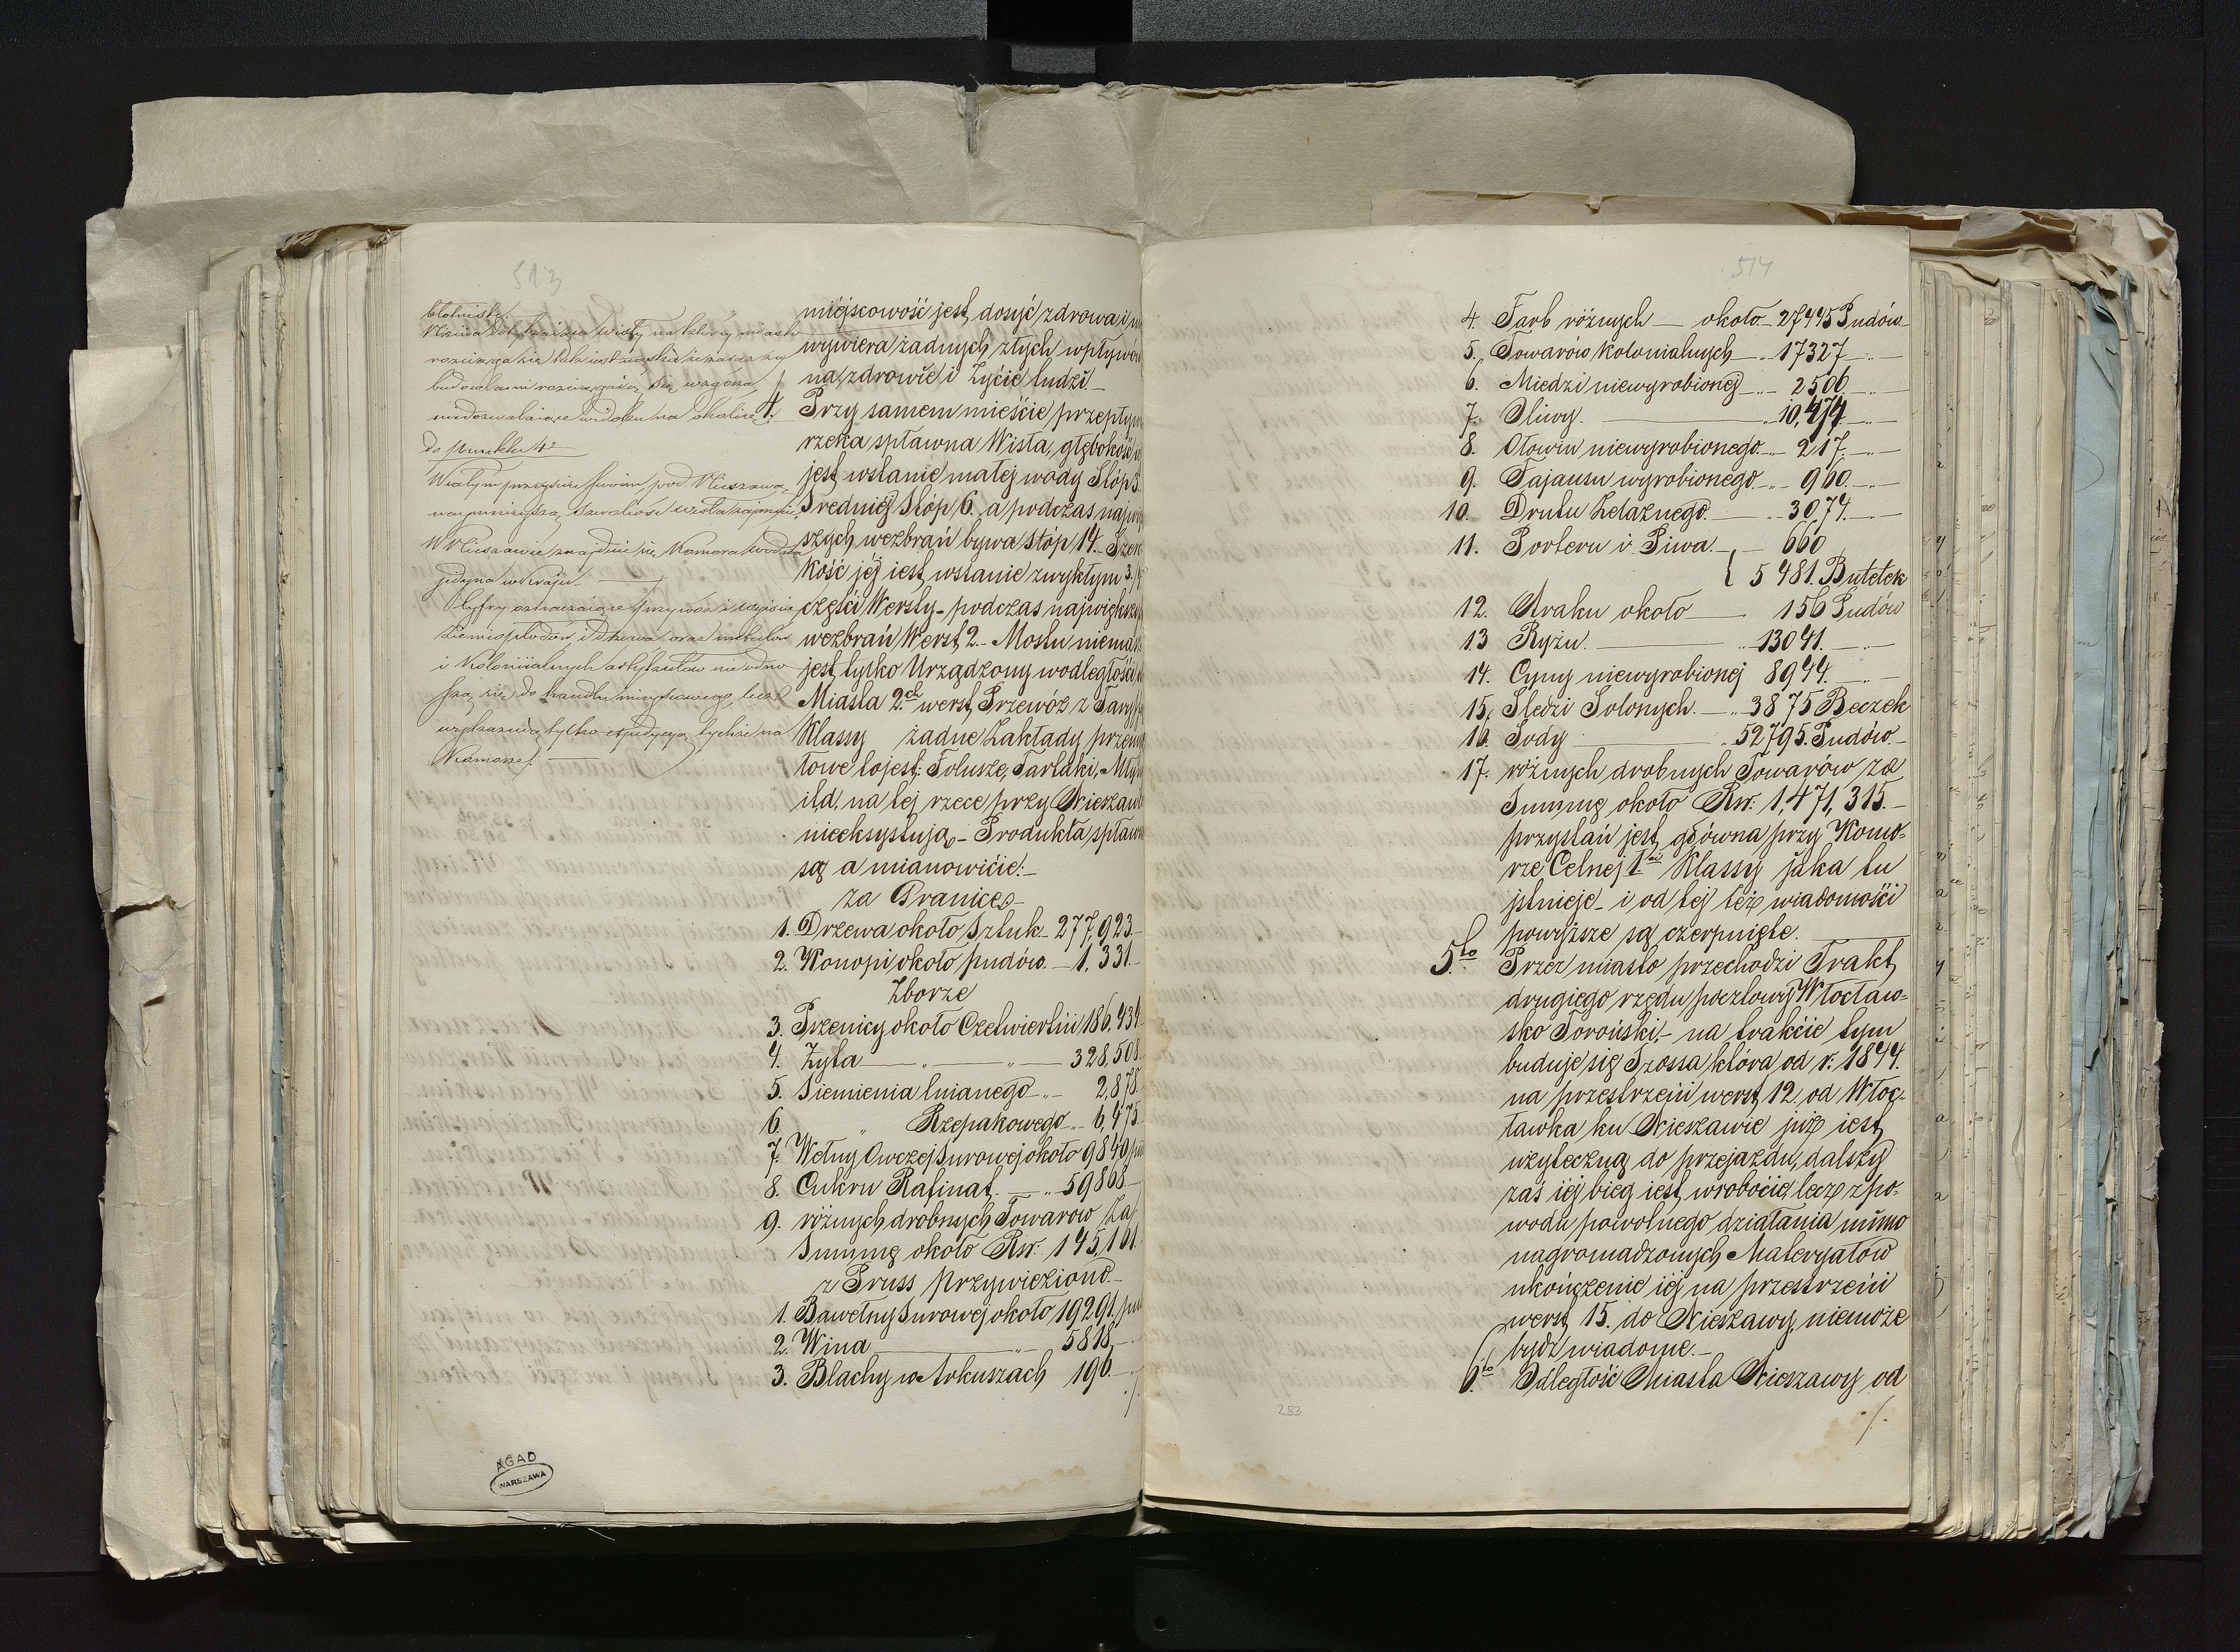 513
błotniste.
Nizina dotykająca Wisły na której miasto
rozciąga się
budowlami rozciągające się wzgórza,
niedozwalające widoku na okolicę.
do punktu 4º
W całym przejściu swoim pod Nieszawą,
najmniejszą szerokość Wisła zajmuje.
W Nieszawie znajduje się Komora wodna
jedyna w kraju.
Cyfry oznaczające przywóz i wyjście
ziemiopłodów i drzewa oraz metalów
i Kolonijalnych artykułów nie odno
szą się do handlu miejscowego, lecz
wykazują tylko expedycyą tychże na
Komorze.
miéjscowość jest, dosyć zdrowa i
wywiera żadnych złych wpływów
na zdrowie i życie ludzi.–
4. Przy samem mieście przepływa
rzeka spławna Wisła, głębokość
jest, wstanie małej wody Stóp 3.
Średniej Stóp 6. a podczas najwię
szych wezbrań bywa stóp 14.– Szero
kość jéj iest, wstanie zwykłym 3/4
części Wersty – podczas największy
wezbrań Werst, 2.– Mostu niema
jest, tylko Urządzony wodległości
Miasta 2ch werst, Przewóz z Taryffą
Klassy żadne Zakłady przemy
słowe tojest: Folusze, Tartaki, Młyn
itd. na tej rzece przy Nieszawie
nieeksystują – Produkta spławne
są a mianowicie:–
za Granicę–
1. Drzewa około Sztuk – 277,923.–
2. Konopi około pudów. – 1,331.–
Zborze
3. Pszenicy około Czetwiertni 186,434
4. Żyta — „ — „ — 328,508
5. Siemienia lnianego – „ – 2,878.
6. „ Rzepakowego – „ 6,475
7. Wełny Owczej Surowej około 9840 pu
8. Cukru Rafinat. — „ 59868–
9. różnych drobnych Towarów Za
Summę około Rsr. 145,101.
z Pruss przywieziono.–
1. Bawełny Surowej około 19291. pu
2. Wina — „ — 5818,–
3. Blachy w Arkuszach 196.–
./.
AGAD
WARSZAWA
514
4. Farb różnych — około – 27445 Pudów–
5. Towarów kolonialnych – „ 17327 – „ –
6. Miedzi niewyrobionej – „ – 2506 – „ –
7. Oliwy. — „ 10,474 – „ –
8. Ołowiu niewyrobionego. – „ 217. – „ –
9. Fajansu wyrobionego – „ – 960. – „ –
10. Drutu Żelaznego. — „ 3074. – „ –
11. Porteru i Piwa – { – 660
5481. Butelek
12. Araku około — 156 Pudów
13 Ryżu. — „ 13041. – „ –
14. Cyny niewyrobionej 8944. – „ –
15. Śledzi Solonych. – „ 3875 Beczek
16. Sody — „ 52795. Pudów.–
17. różnych drobnych Towarów za
Summę około Rsr. 1,471,315.–
przystań jest, główna przy Komo-
rze Celnej 1ej Klassy jaka tu
jstnieje – i od tej też wiadomości
powyższe są czerpnięte.
5to Przez miasto przechodzi Trakt,
drugiego rzędu pocztowy Włocław-
sko Toruński,– na trakcie tym
buduje się Szossa która od r. 1844.
na przestrzeni werst, 12. od Włoc-
ławka ku Nieszawie już iest,
użyteczną do przejazdu, dalszy
zaś iéj bieg iest, wrobocie, lecz z po-
wodu powolnego działania mimo
nagromadzonych Materyałów
ukończenie iéj na przestrzeni
werst, 15. do Nieszawy, niemoże
bydź wiadome.–
6to Odległość Miasta Nieszawy od
./.
283